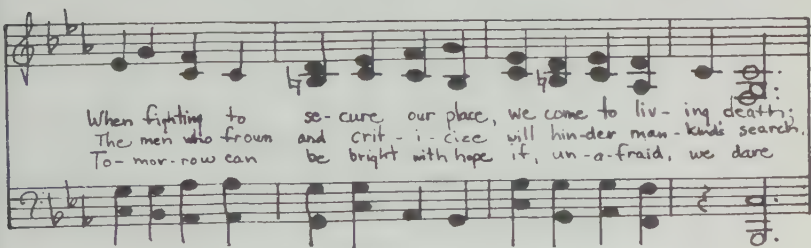 When fighting to se-cure our place, we come to liv-ing death;
The men who frown and crit-i-cize will hin-der man-kind's search,
To-mor-row can be bright with hope if, un-a-fraid, we dare